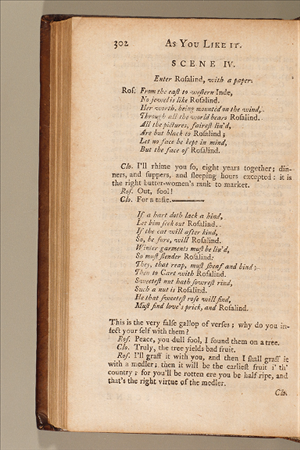 302 AS YOU LIKE IT.
SCENE IV.
Enter Rosalind, with a paper.
Ros. From the east to western Inde,
No jewel is like Rosalind.
Her worth, being mounted on the wind,
Through all the world bears Rosalind.
All the pictures, fairest lin'd,
Are but black to Rosalind;
Let no face be kept in mind,
But the face of Rosalind.
Clo. I'll rhime you so, eight years together; din-
ners, and suppers, and sleeping hours excepted: it is
the right butter-women's rank to market.
Ros. Out, fool!
Clo. For a taste.
If a hart doth lack a hind,
Let him seek out Rosalind.
If the cat will after kind,
So, be sure, will Rosalind.
Winter garments must be lin'd,
So must slender Rosalind:
They, that reap, must sheaf and bind;
Then to Cart with Rosalind.
Sweetest nut hath sowrest rind,
Such a nut is Rosalind.
He that sweetest rose will find,
Must find love's prick, and Rosalind.
This is the very false gallop of verses; why do you in-
fect your self with them?
Ros. Peace, you dull fool, I found them on a tree.
Clo. Truly, the tree yields bad fruit.
Ros. I'll graff it with you, and then I shall graff it
with a medler; then it will be the earliest fruit i' th'
country; for you'll be rotten ere you be half ripe, and
that's the right virtue of the medler.
Clo.